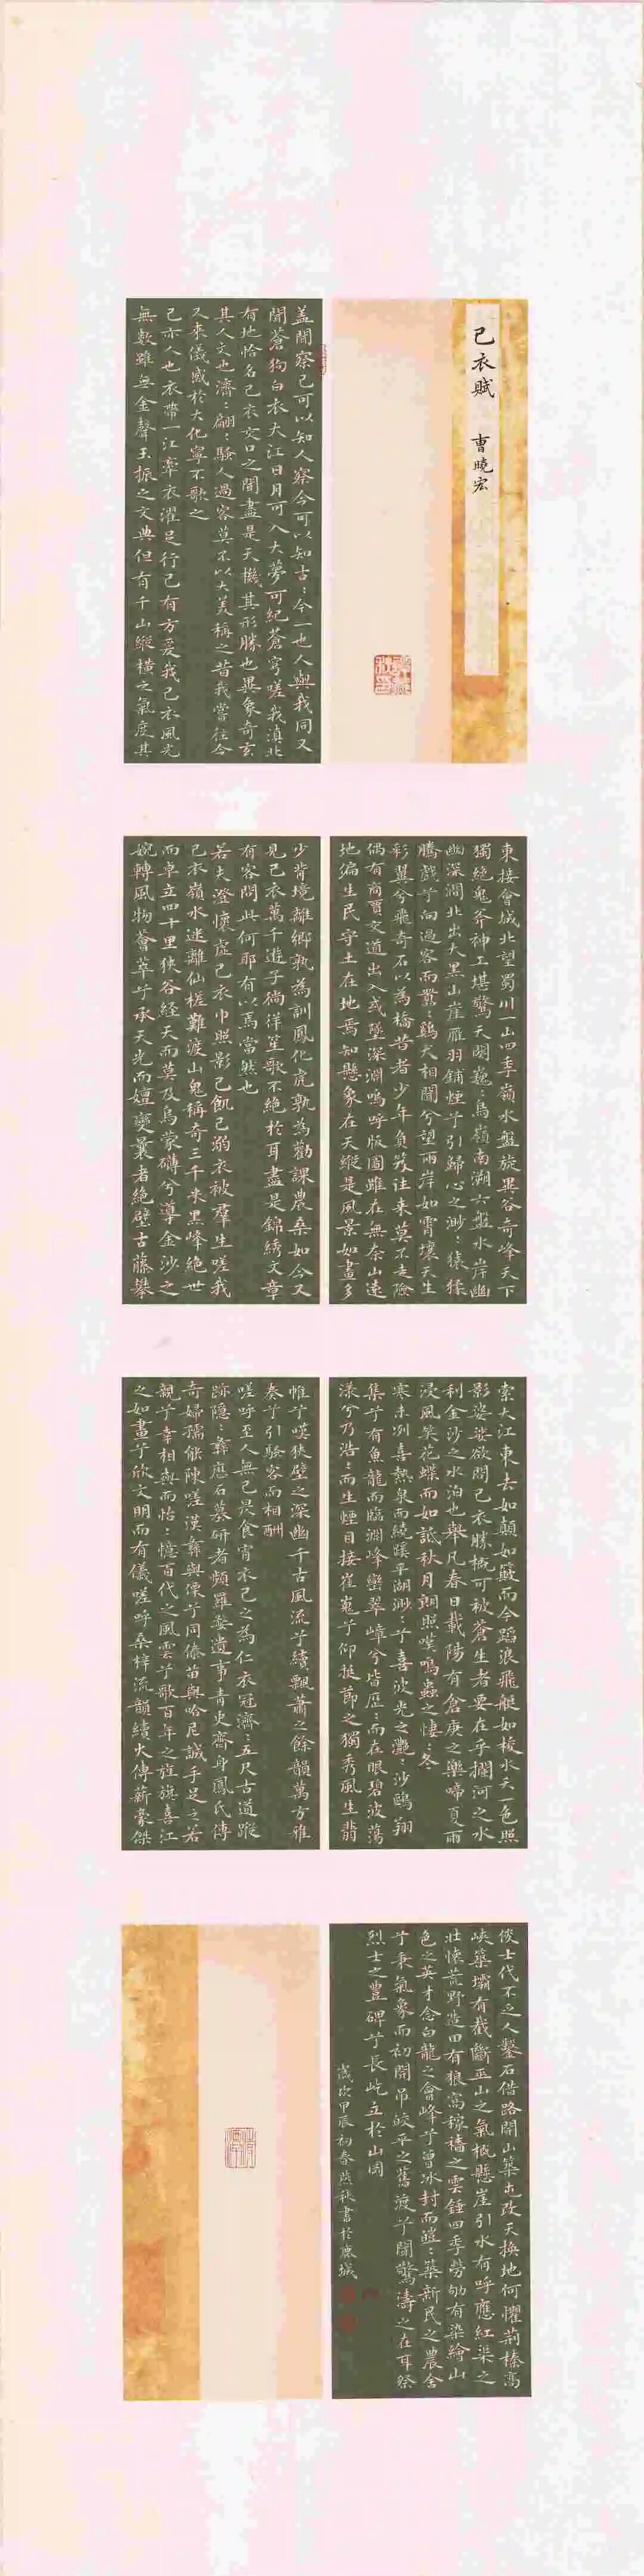 己衣賦 曹曉宏
蓋聞察己可以知人察今可以知古：今一也人與我同又
聞蒼狗白衣大江日月可入大夢可紀蒼穹嗟我滇北
有地恰名己衣交口之間盡是天機其形勝也異象奇玄
其人文也濟：翩：騷人過客莫不以大美稱之昔我嘗往今
又來儀感於大化寧不歌之
己亦人也衣帶一江牽衣濯足行己有方爰我己衣風光
無數雖無金聲玉振之文典但有千山縱橫之氣度其
東接會城北望蜀川一山四季嶺水盤旋異谷奇峰天下
獨絕鬼斧神工堪驚天闕巍：烏嶺南溯六盤水岸幽
幽深澗北出大黑山崖雁羽鋪煙兮引歸心之渺：猿猱
騰戲兮向過客而囂：鷄犬相聞兮望兩岸如霄壤天生
彩翼兮飛奇石以為橋昔者少年負笈往來莫不走險
偶有商賈交道出入或墜深淵嗚呼版圖雖在無奈山遠
地偏生民守土在地焉知懸象在天縱是風景如畫多
少背境離鄉孰為訓鳳化虎孰為勸課農桑如今又
見己衣萬千遊子徜徉笙歌不絕於耳盡是錦綉文章
有客問此何耶有以焉當然也
若夫澄懷虛己衣巾照影己飢己溺衣被羣生嗟我
己衣嶺水迷離仙槎難渡山鬼稱奇三千米黑峰絕世
而卓立四十里狹谷經天而莫及烏蒙磚兮導金沙之
婉轉風物薈萃兮承天光而嬗變曩者絕壁古藤攀
索大江東去如顛如簸而今蹈浪飛艇如梭水天一色照
影娑婆欲問己衣勝概可被蒼生者要在乎攔河之水
利金沙之水泊也舉凡春日載陽有倉庚之樂啼夏雨
浸風笑花蝶而如詆秋月朗照嘆鳴蟲之悽：冬
寒未冽喜熱泉而繞蹊平湖渺：兮喜波光之灔沙鷗翔
集兮有魚龍而臨淵峰巒翠嶂兮皆歷：而在眼碧波蕩
漾兮乃浩：而生煙目接崔嵬兮仰挺節之獨秀風生翡
帷兮嘆狹壁之深幽千古風流兮續飄蕭之餘韻萬方雅
奏兮引騷客而相酬
嗟呼至人無己畏食宵衣己之為仁衣冠濟：五尺古道蹤
跡隱：彝應石墓研者頻羅婺遺事青史齋身鳳氏傳
奇婦孺能陳嗟漢彝與傈兮同傣苗與哈尼誠手足之若
親兮幸相與而怡：憶百代之風雲兮歌百年之旌旗喜江
之如畫兮欣文明而有儀嗟呼桑梓流韻續火傳薪豪傑
俊士代不乏人鑿石借路開山築屯改天換地何懼荊榛高
峽築壩有截斷巫山之氣概懸崖引水有呼應紅渠之
壯懷荒野造田有狼窩稼穡之雲錘四季勞劬有染繪山
色之英才念白龍之會峰兮曾冰封而皚：築新民之農舍
兮秉氣象而初開吊皎平之舊渡兮聞驚濤之在耳祭
烈士之豐碑兮長屹立於山岡
歲次甲辰初春燕秋書於鹿城